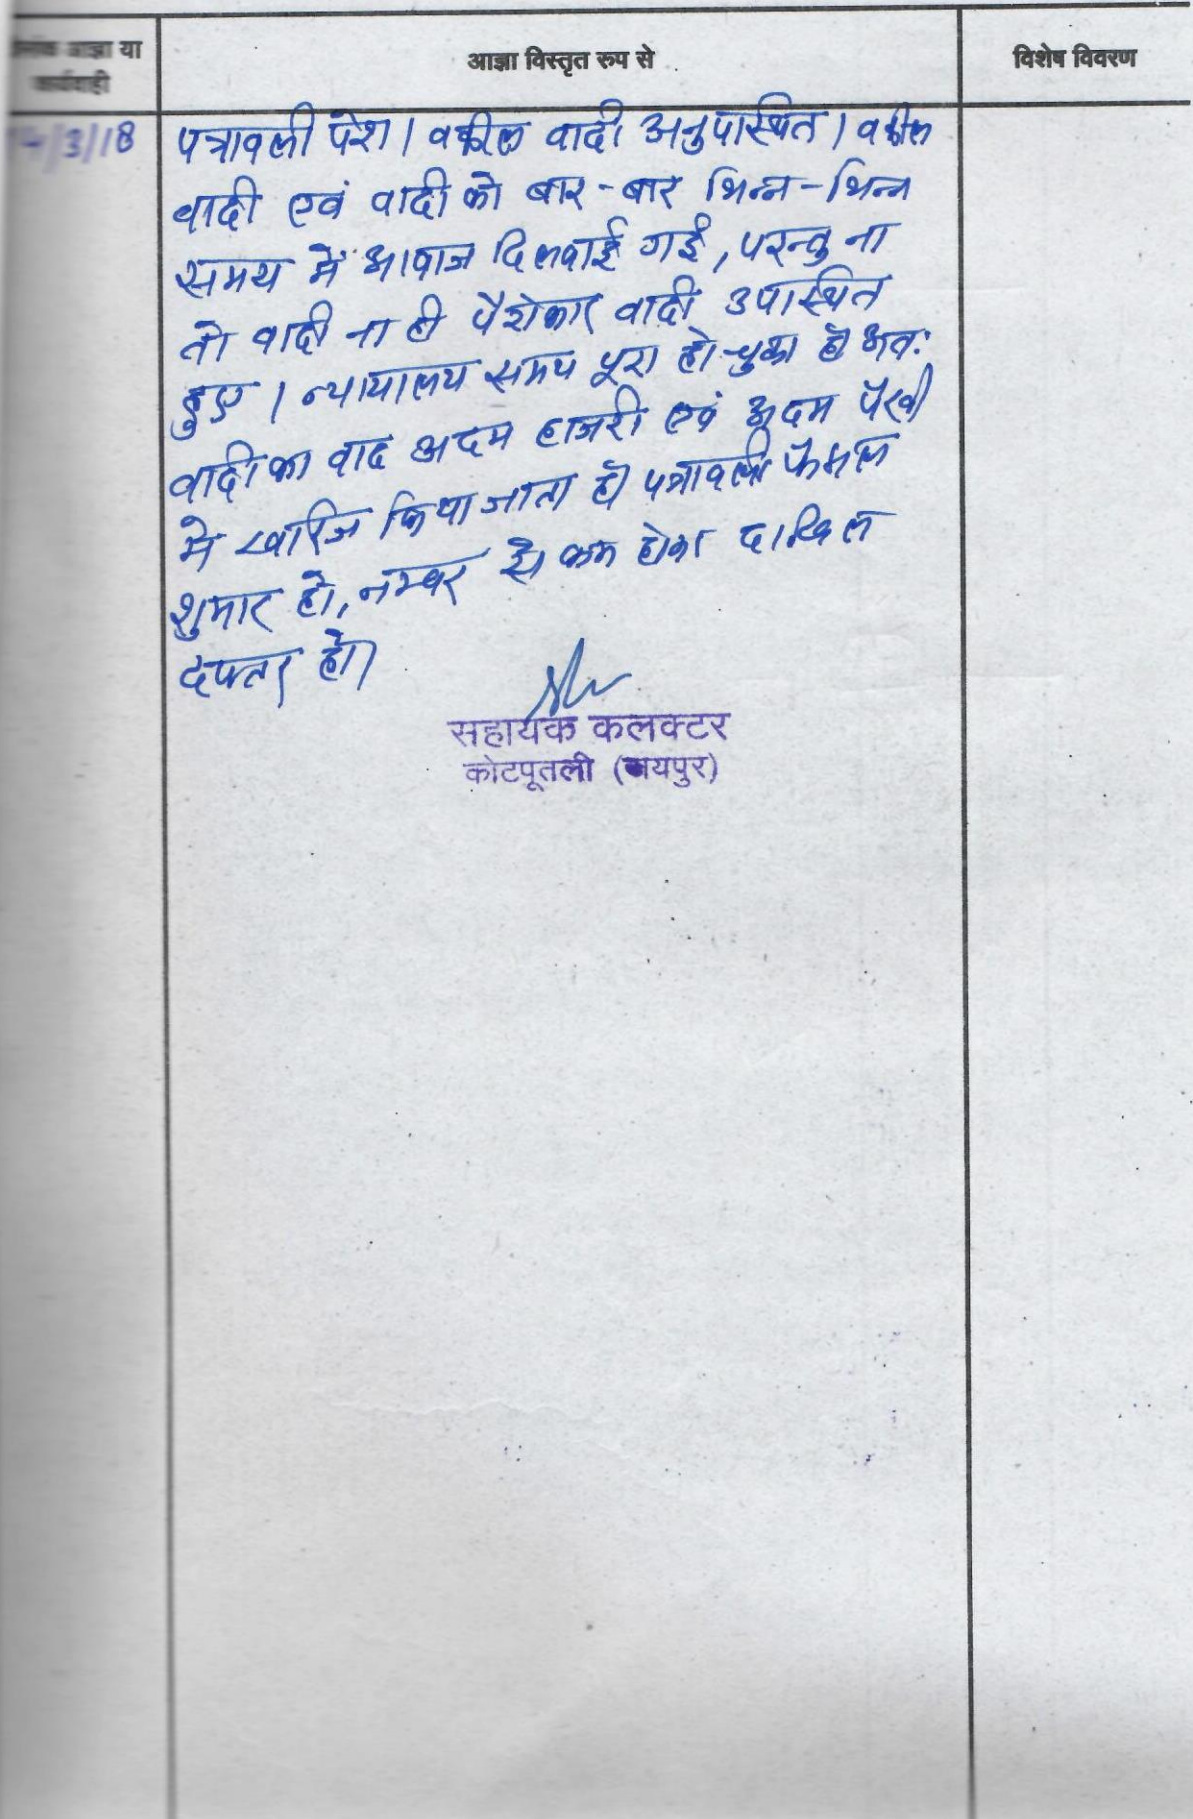 आज्ञा या
कार्यवाही
आज्ञा विस्तृत रुप से
विशेष विवरण
4/3/18
पत्रावली पेश। वकील वादी अनुपस्थित। वकील
वादी एवं वादी को बार-बार भिन्न-भिन्न
समय में आवाज दिलवाई गई, परन्तु ना
तो वादी ना ही पैरोकार वादी उपस्थित
हुए। न्यायालय समय पूरा हो चुका है अत:
वादी का वाद अदम हाजरी एवं अदम पैरवी
मे खारिज किया जाता है। पत्रावली फैसल
शुमार हो, नम्बर से कम होकर दाखिल
दफ्तर हो।
सहायक कलक्टर
कोटपूतली (जयपुर)